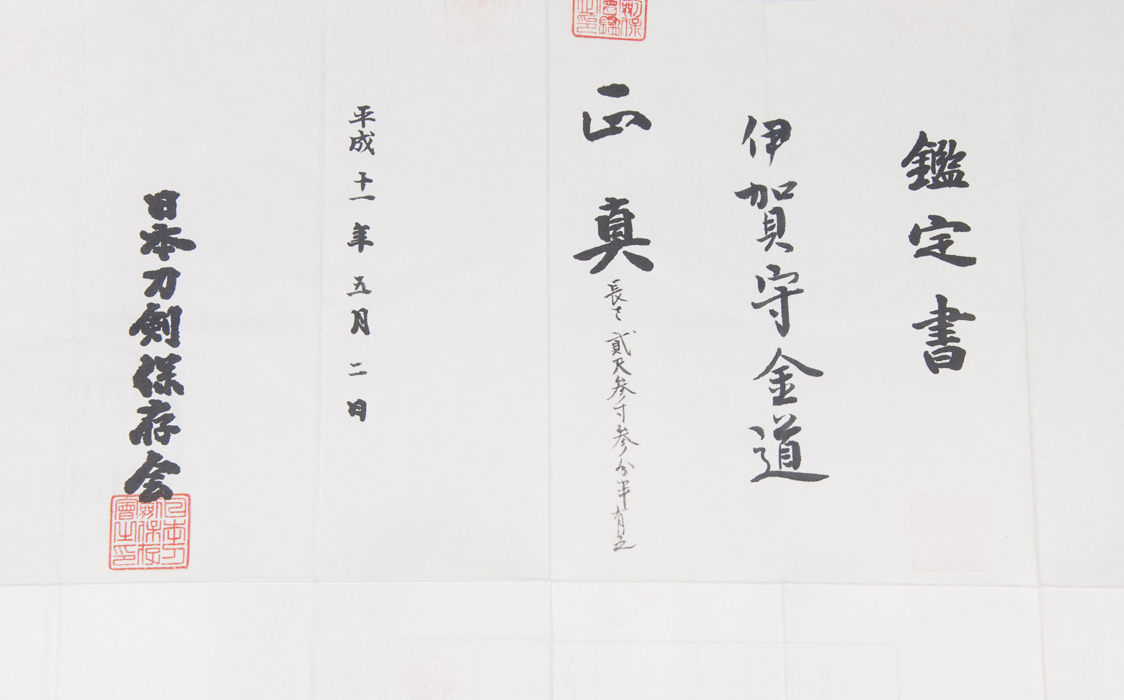 鑑定書
伊賀守金道
正真
長さ貳尺参寸参分半有之
平成十一年五月二日
日本刀剣保存会